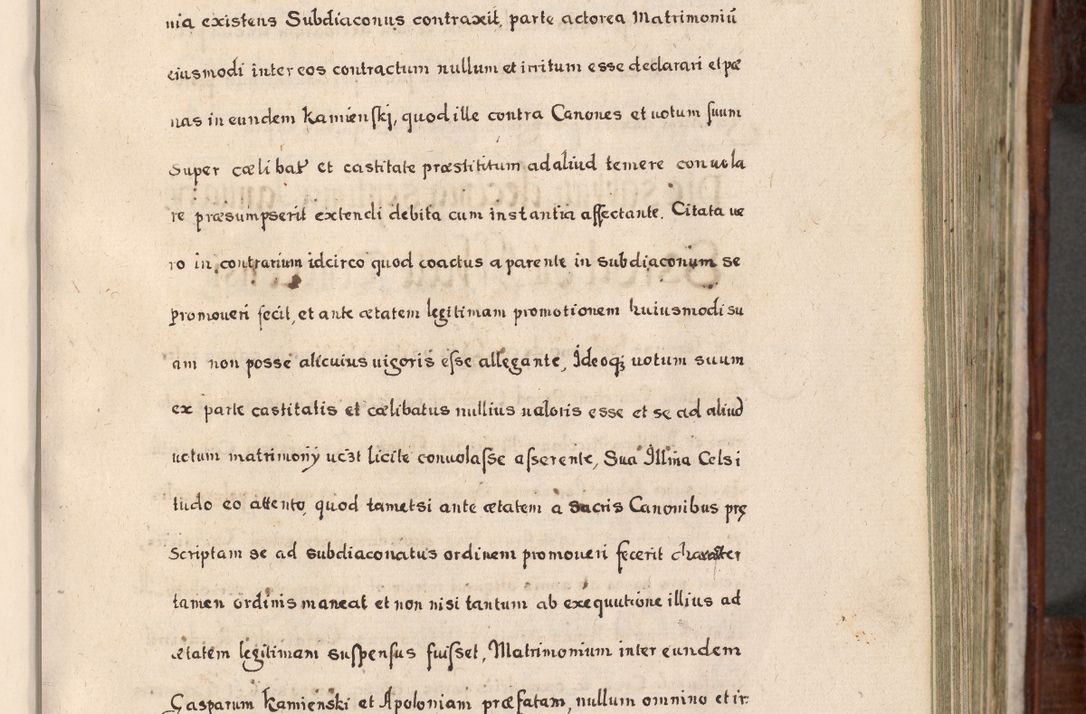 nia existens Subdiaconus contraxit, parte actorea Matrimoniū
eiusmodi inter eos contractum nullum et irritum esse declarari et pæ
nas in eundem Kamienskj, quod ille contra Canones et uotum suum
Super cœlibat9 et castitate præstititum ad aliud temere conuola
re præsumpserit extendi debita cum instantia affectante. Citata ue
ro in contrarium idcirco quod coactus a parente in subdiaconum se
promoueri fecit, et ante ætatem legitimam promotionem huiusmodi su
am non posse alicuius uigoris esse allegante, Ideoq; uotum suum
ex parte castitatis et cœlibatus nullius ualoris esse et se ad aliud
uotum matrimonÿ licite conuolasse asserente, Sua Illma Celsi
tudo eo attento, quod tametsi ante ætatem a Sacris Canonibus prę
Scriptam se ad subdiaconatus ordinem promoueri fecerit character
tamen ordinis maneat et non nisi tantum ab exequutione illius ad
ætatem legitimam suspensus fuisset, Matrimonium inter eundem
Gasparum Kamienski et Apoloniam præfatam, nullum omnino et ir